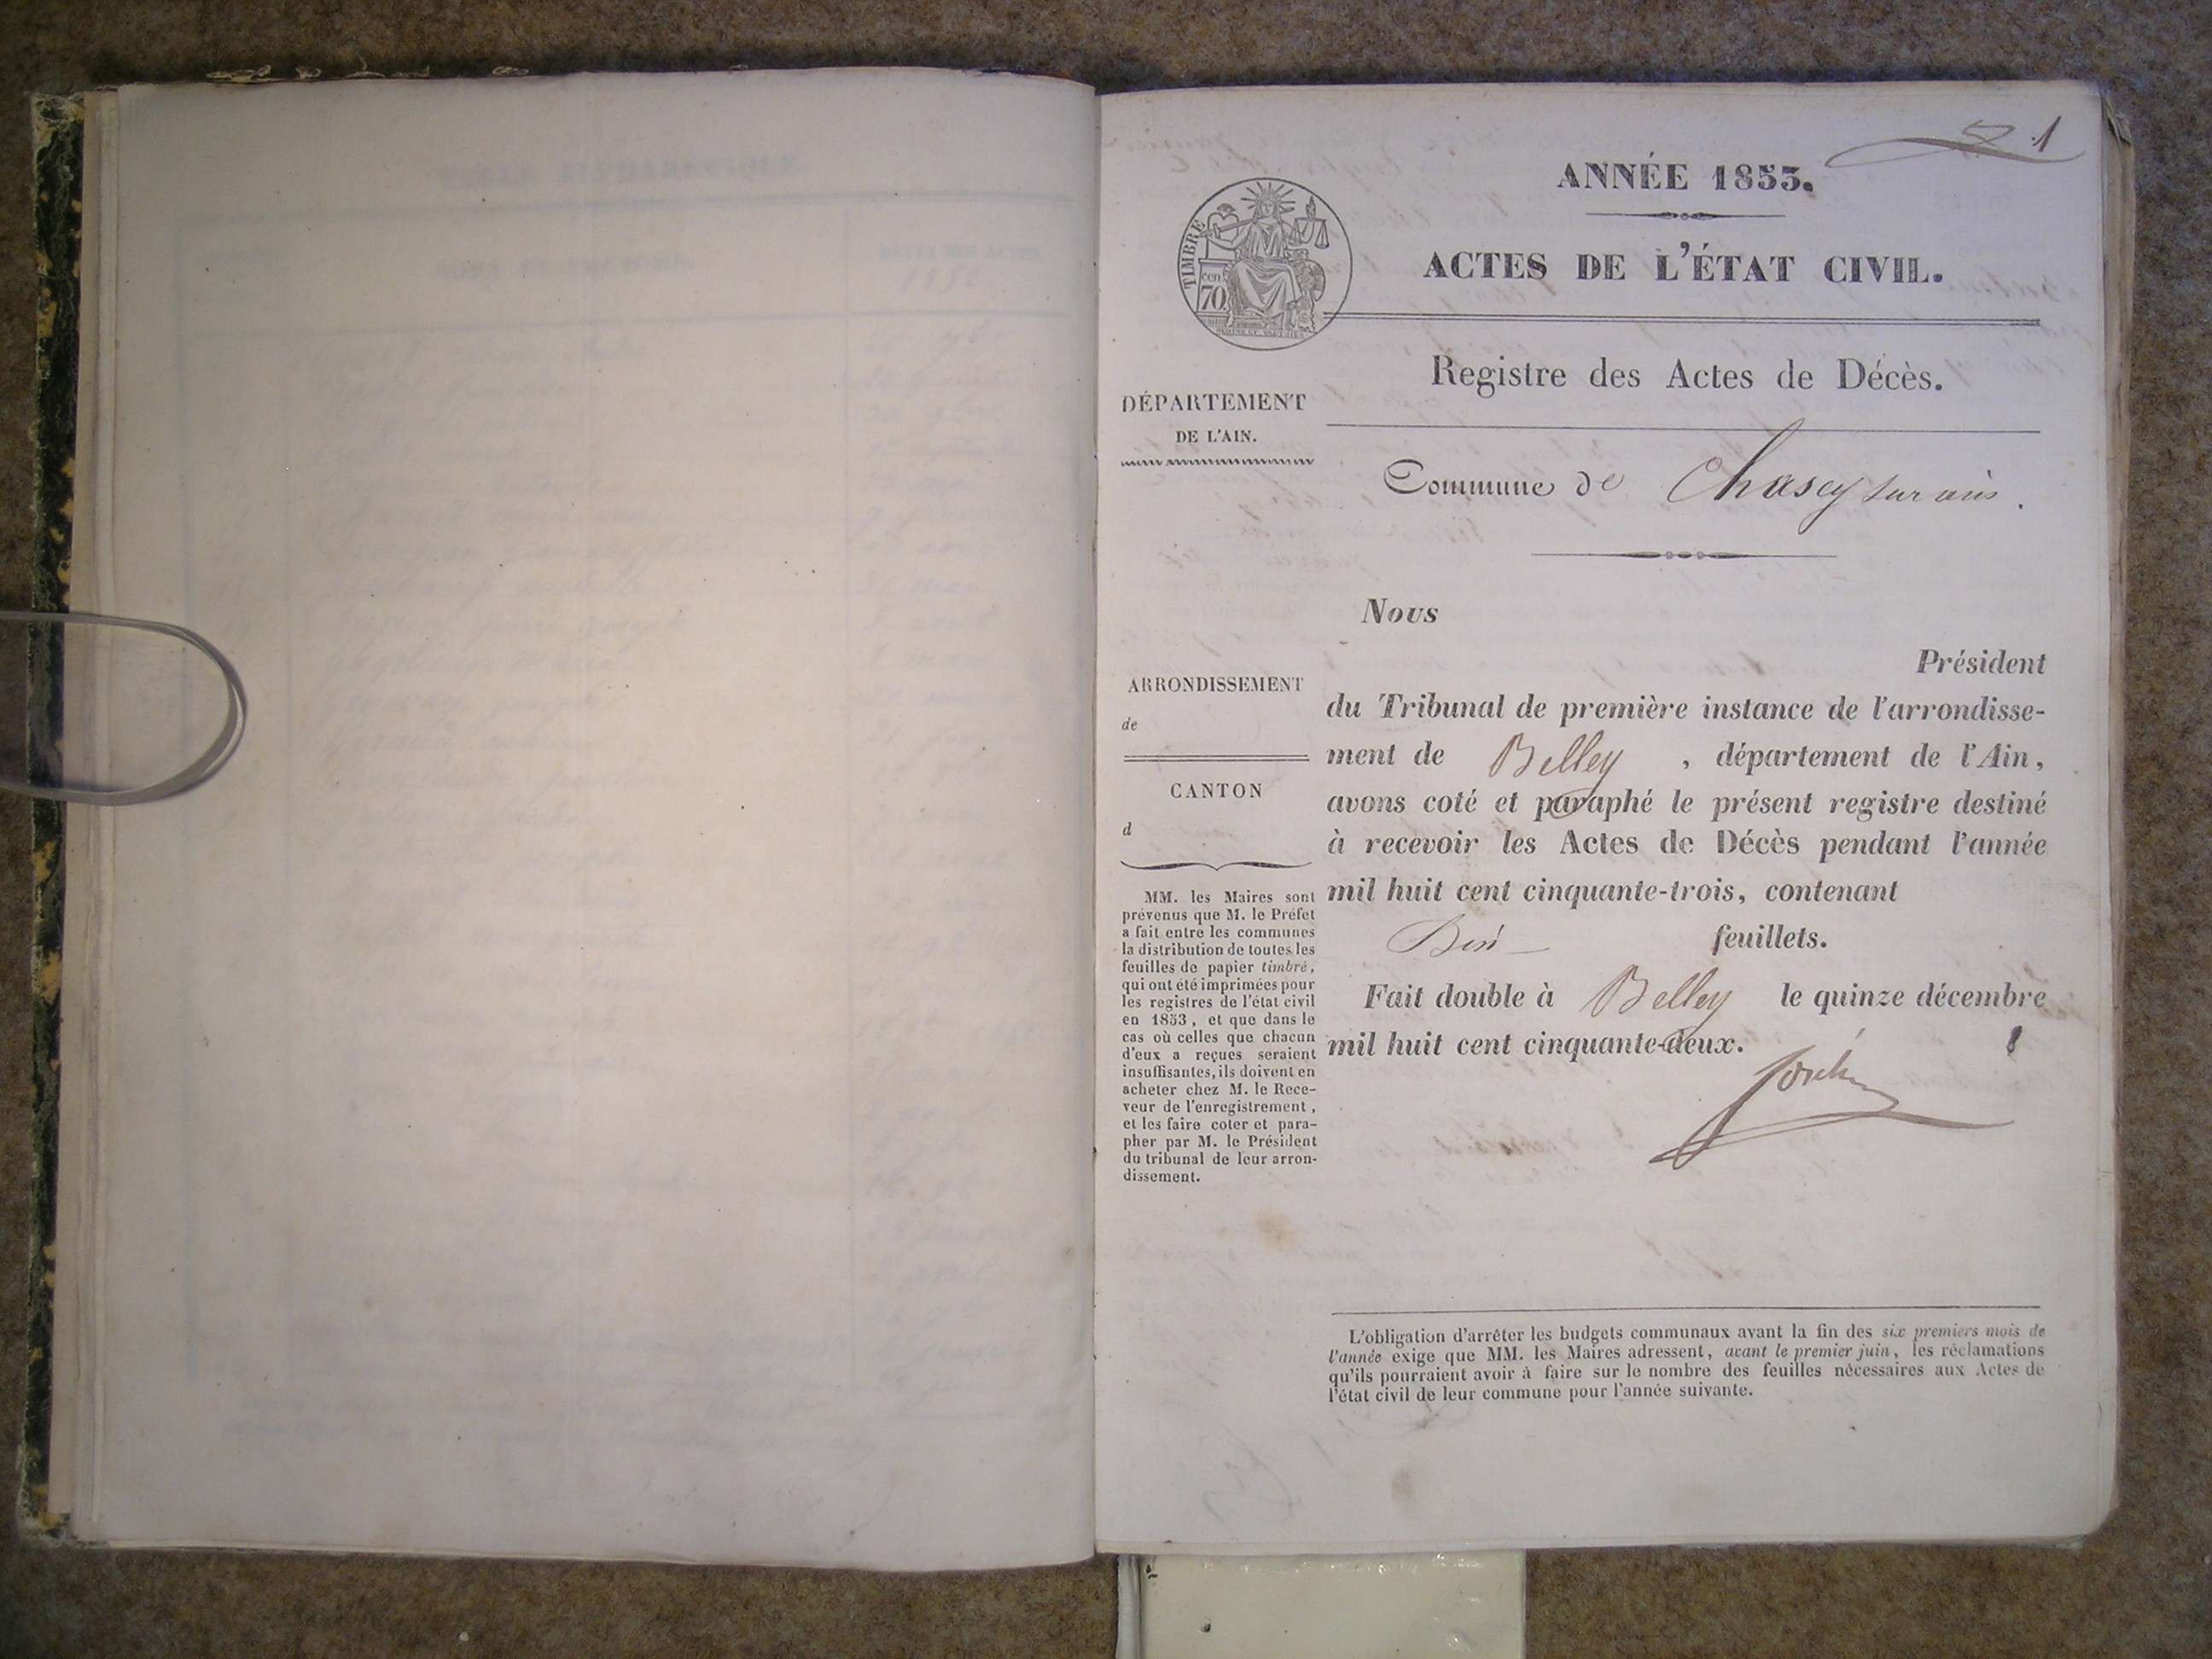 1
ANNÉE 1853.
ACTES DE L'ÉTAT CIVIL.
TIMBRE
CEN
70
Registre des Actes de Décès.
DÉPARTEMENT
DE L'AIN.
Commune de Chasey sur ain.
Nous
Président
du Tribunal de première instance de l'arrondisse-
ment de Belley, département de l'Ain,
avons coté et paraphé le présent registre destiné
à recevoir les Actes de Décès pendant l'année
mil huit cent cinquante-trois, contenant
feuillets.
Fait double à Belley le quinze décembre
mil huit cent cinquante-deux.
ARRONDISSEMENT
de
CANTON
d
MM. les Maires sont
prévenus que M. le Préfet
a fait entre les communes
la distribution de toutes les
feuilles de papier timbré,
qui ont été imprimées pour
les registres de l'état civil
en 1853, et que dans le
cas où celles que chacun
d'eux a reçues seraient
insuffisantes, ils doivent en
acheter chez M. le Rece-
veur de l'enregistrement,
et les faire coter et para-
pher par M. le Président
du tribunal de leur arron-
dissement.
L'obligation d'arrêter les budgets communaux avant la fin des six premiers mois de
l'année exige que MM. les Maires adressent, avant le premier juin, les réclamations
qu'ils pourraient avoir à faire sur le nombre des feuilles nécessaires aux Actes de
l'état civil de leur commune pour l'année suivante.